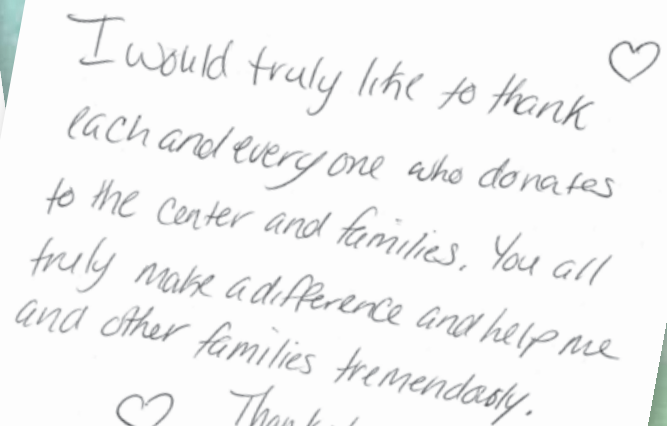 I would truly like to thank
each and every one who donates
to the center and families. You all
truly make a difference and help me
and other families tremendously.